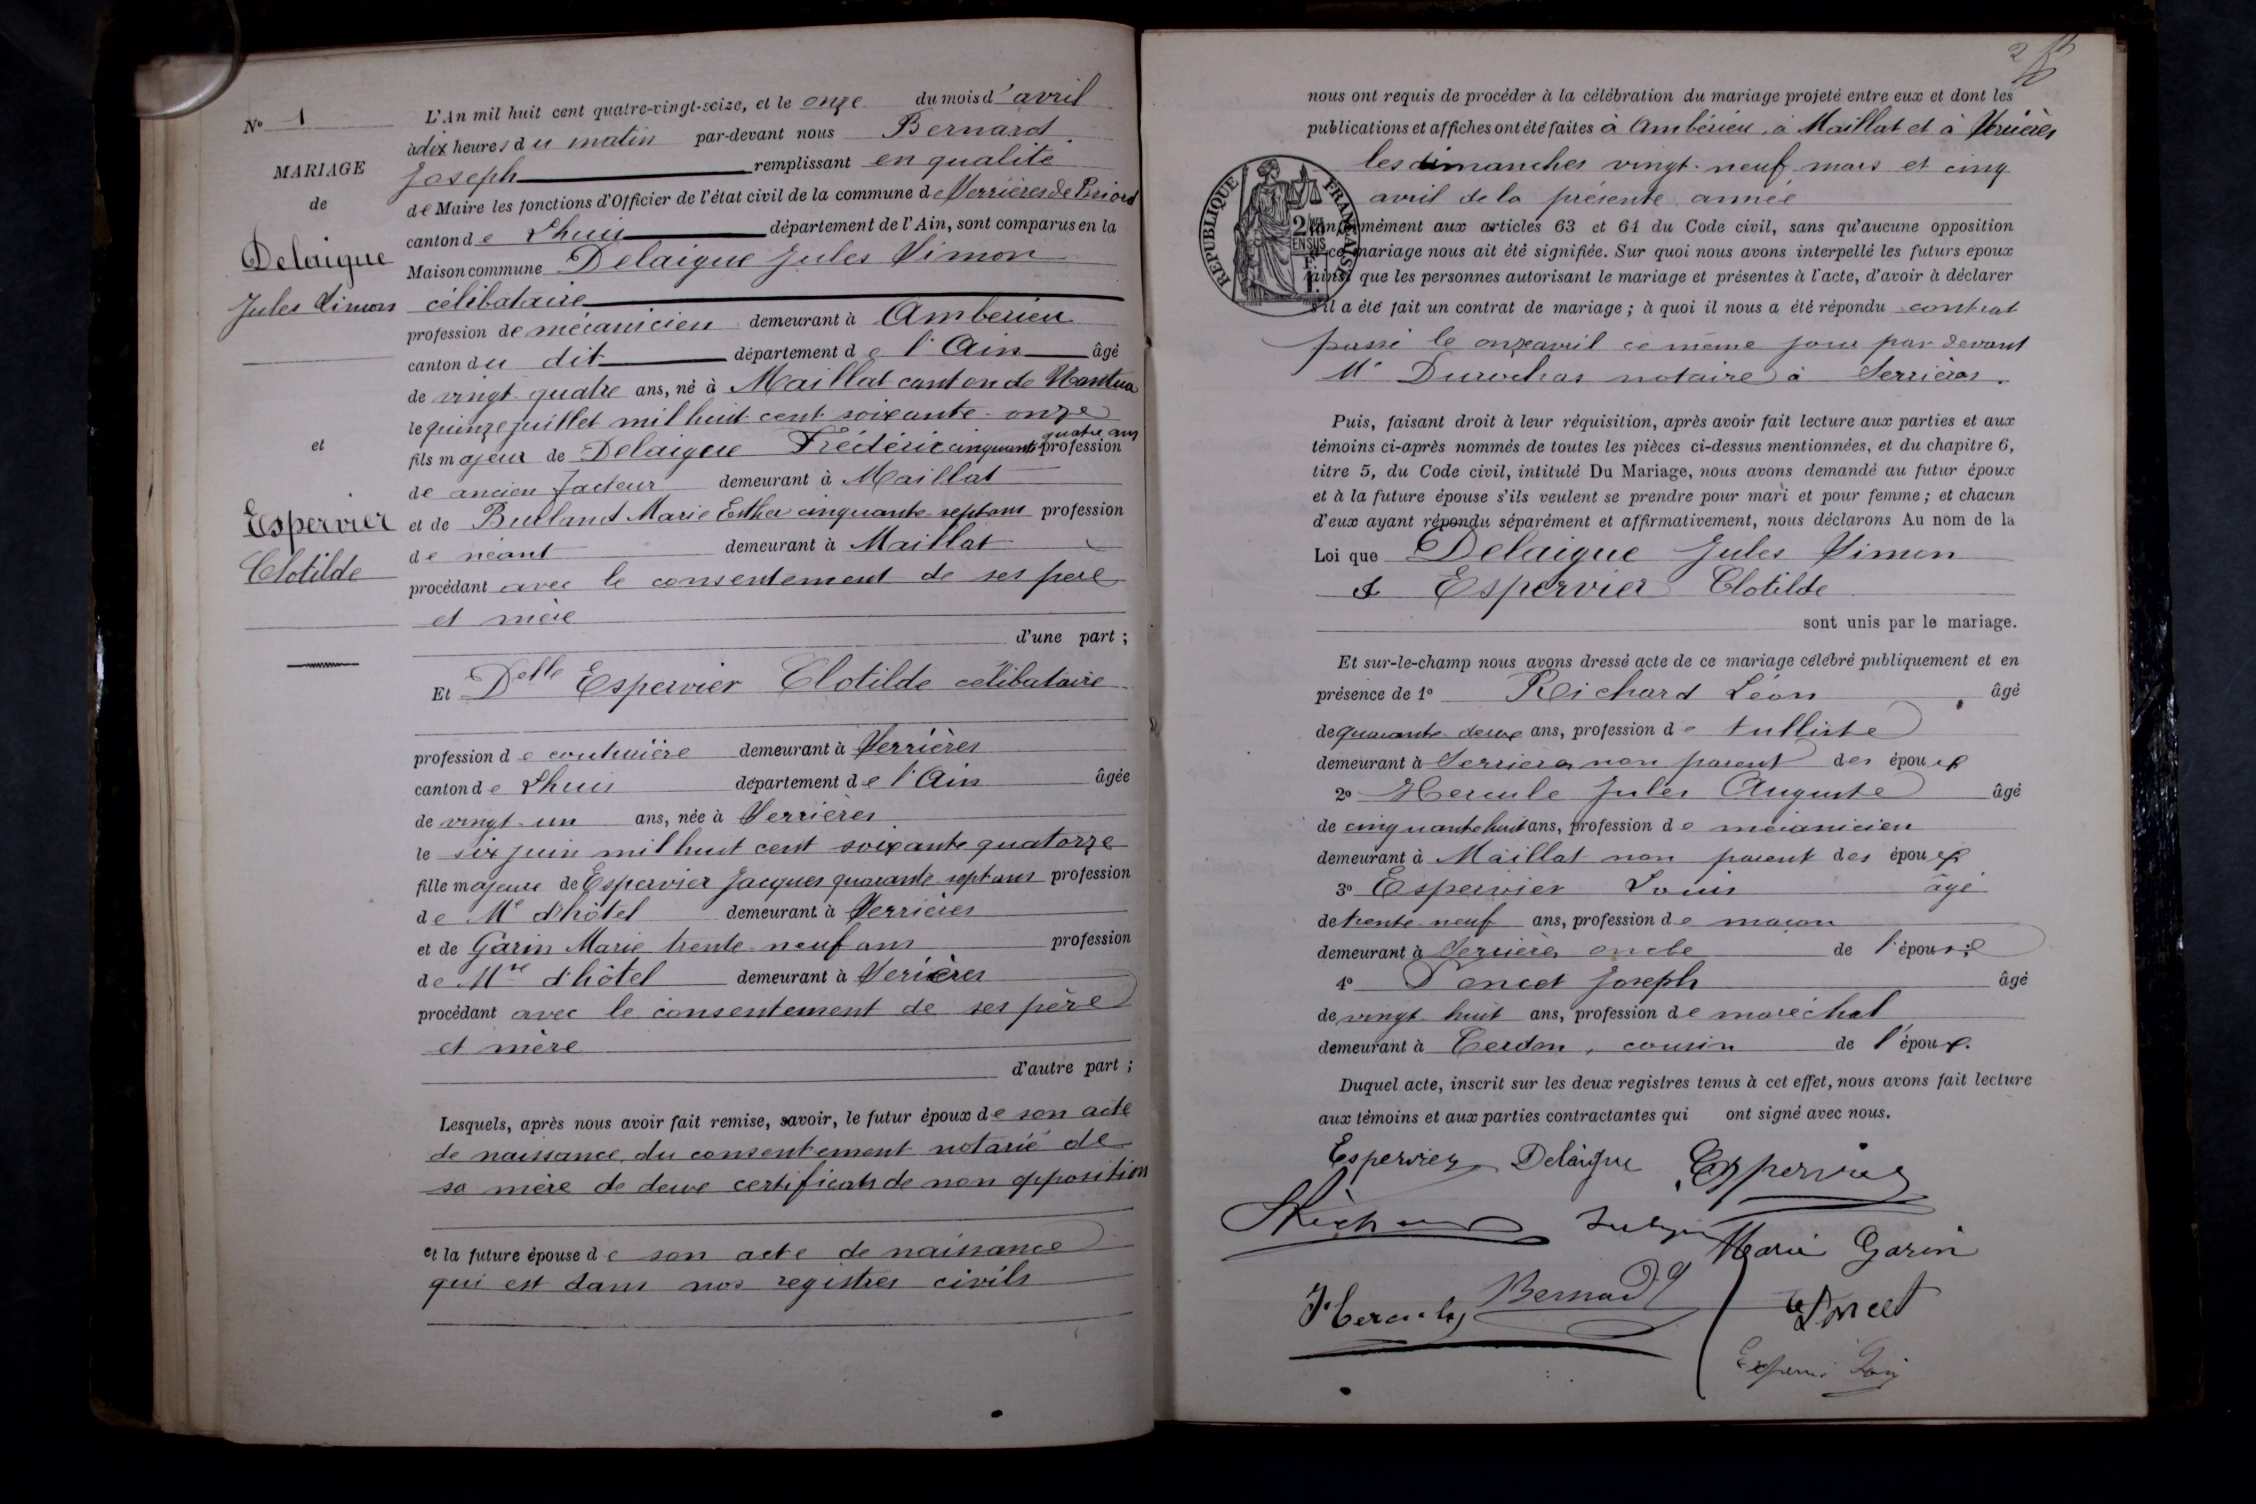 N° 1
MARIAGE
de
Delaigue
Jules Simon
et
Espervier
Clotilde
L'An mil huit cent quatre-vingt-seize, et le onze du mois d'avril
à dix heures du matin par-devant nous Bernard
Joseph remplissant en qualité
de Maire les fonctions d'Officier de l'état civil de la commune de Serrières de Briord
canton de Lhuis département de l'Ain, sont comparus en la
Maison commune Delaigue Jules Simon
célibataire
profession de mécanicien demeurant à Ambérieu
canton du dit département de l'Ain âgé
de vingt quatre ans, né à Maillat canton de Nantua
le quinze juillet mil huit cent soixante-onze
fils majeur de Delaigue Frédéric cinquante quatre ans profession
de ancien facteur demeurant à Maillat
et de Burland Marie Esther cinquante sept ans profession
de néant demeurant à Maillat
procédant avec le consentement de ses père
et mère
d'une part ;
Et Delle Espervier Clotilde célibataire
profession de couturière demeurant à Serrières
canton de Lhuis département de l'Ain âgée
de vingt-un ans, née à Serrières
le six juin mil huit cent soixante quatorze
fille majeure de Espervier Jacques quarante sept ans profession
de Me d'hôtel demeurant à Serrières
et de Garin Marie trente neuf ans profession
de Mtre d'hôtel demeurant à Serières
procédant avec le consentement de ses père
et mère
d'autre part ;
Lesquels, après nous avoir fait remise, savoir, le futur époux de son acte
de naissance, du consentement notarié de
sa mère de deux certificats de non opposition
et la future épouse de son acte de naissance
qui est dans nos registres civils
2
nous ont requis de procéder à la célébration du mariage projeté entre eux et dont les
publications et affiches ont été faites à Ambérieu, à Maillat et à Serrières
les dimanches vingt-neuf mars et cinq
avril de la présente année
RÉPUBLIQUE FRANÇAISE
conformément aux articles 63 et 64 du Code civil, sans qu'aucune opposition
à ce mariage nous ait été signifiée. Sur quoi nous avons interpellé les futurs époux
ainsi que les personnes autorisant le mariage et présentes à l'acte, d'avoir à déclarer
s'il a été fait un contrat de mariage ; à quoi il nous a été répondu contrat
passé le onze avril ce même jour par devant
Me Durochas notaire à Serrières.
Puis, faisant droit à leur réquisition, après avoir fait lecture aux parties et aux
témoins ci-après nommés de toutes les pièces ci-dessus mentionnées, et du chapitre 6,
titre 5, du Code civil, intitulé Du Mariage, nous avons demandé au futur époux
et à la future épouse s'ils veulent se prendre pour mari et pour femme ; et chacun
d'eux ayant répondu séparément et affirmativement, nous déclarons Au nom de la
Loi que Delaigue Jules Simon
& Espervier Clotilde
sont unis par le mariage.
Et sur-le-champ nous avons dressé acte de ce mariage célébré publiquement et en
présence de 1° Richard Léon âgé
de quarante deux ans, profession de tulliste
demeurant à Serrières non parent des époux
2° Hercule Jules Auguste âgé
de cinquante huit ans, profession de mécanicien
demeurant à Maillat non parent des époux
3° Espervier Louis âgé
de trente neuf ans, profession de maçon
demeurant à Serrières oncle de l'épouse
4° Poncet Joseph âgé
de vingt huit ans, profession de maréchal
demeurant à Cerdon, cousin de l'époux.
Duquel acte, inscrit sur les deux registres tenus à cet effet, nous avons fait lecture
aux témoins et aux parties contractantes qui ont signé avec nous.
Espervier Delaigue Espervier
Richard
Marie Garin
Hercule Bernard Poncet